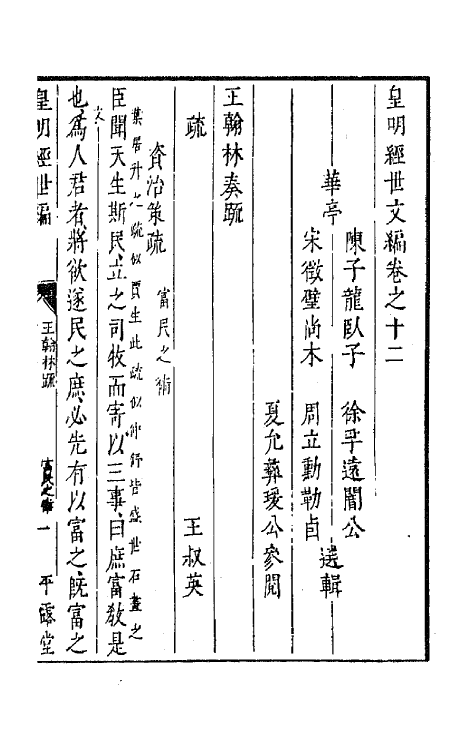 皇明經世文編卷之十二
華亭
陳子龍臥子
徐孚遠闇公
宋徵璧尚木
周立勳勒卣
選輯
夏允彝瑗公參閱
王翰林奏疏
疏
王叔英
資治策疏
富民之術
葉居升之疏似賈生此疏似仲舒皆盛世石畫之
文
臣聞天生斯民立之司牧而寄以三事曰庶富教是
也為人君者將欲遂民之庶必先有以富之既富之
皇明經世編
王翰林疏
富民之術
一
平露堂